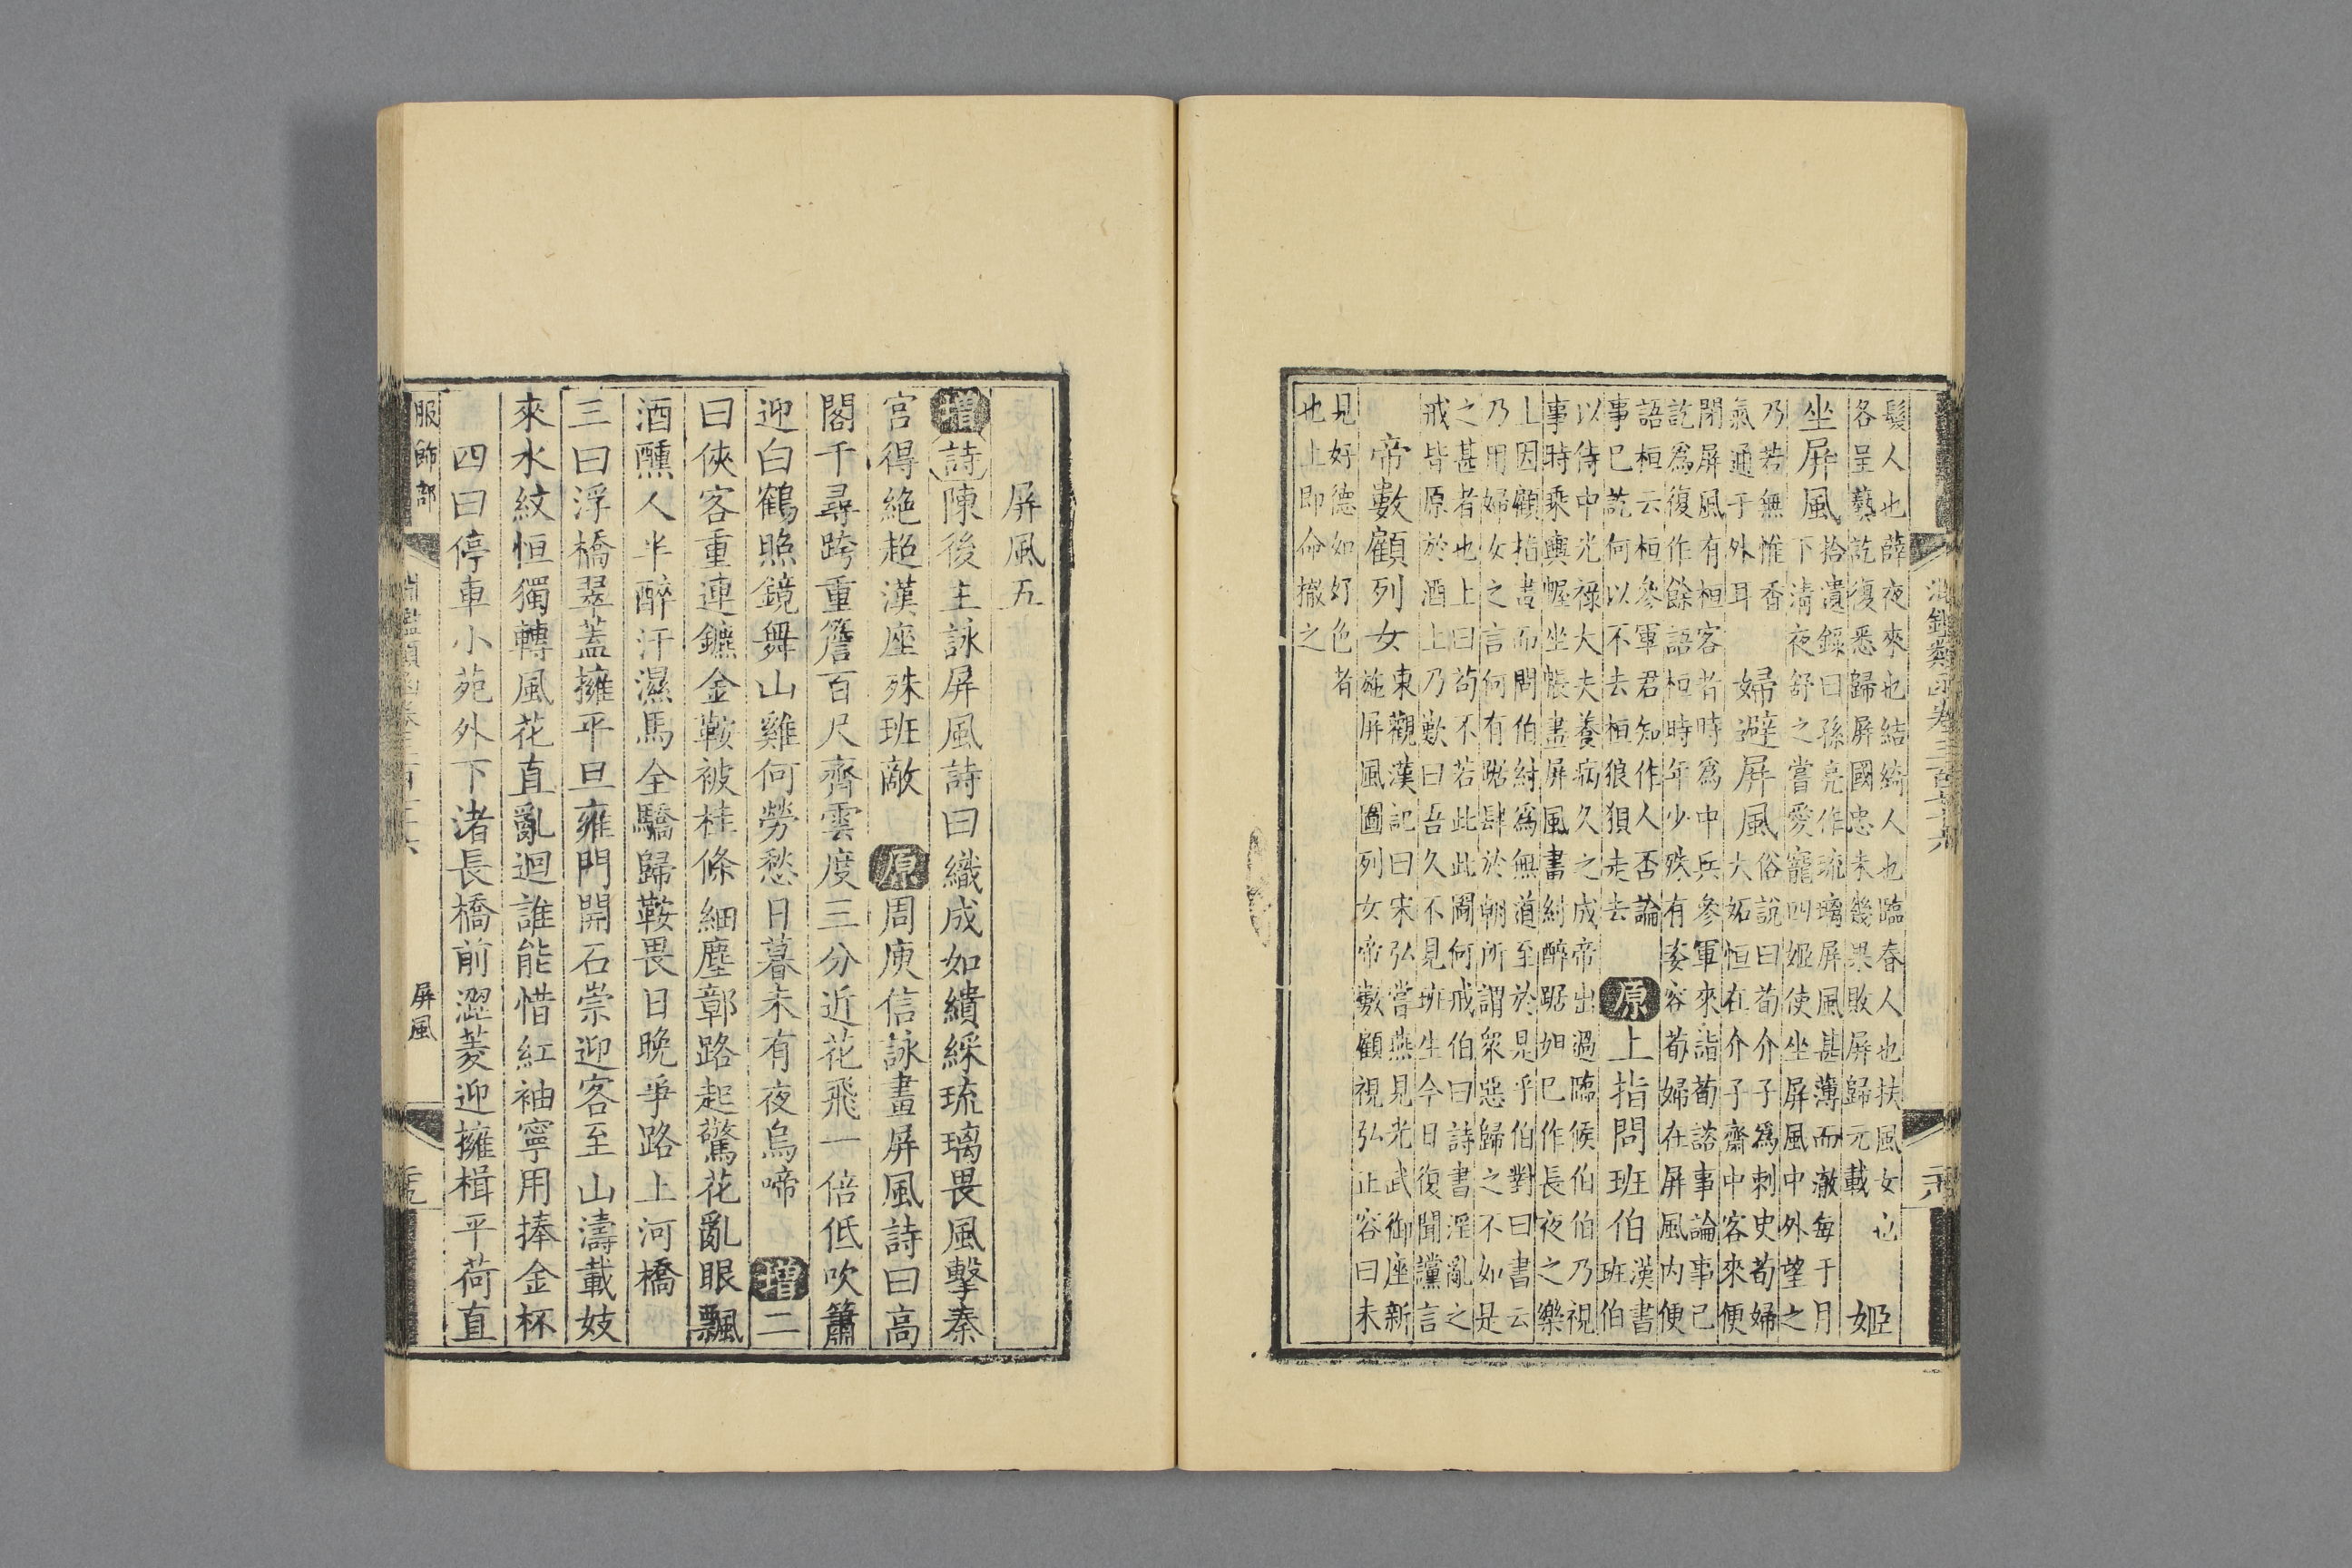 淵鑑類函卷三百七十六
鬟人也薛夜來也結綺人也臨春人也扶風女也
各呈藝訖復悉歸屏國忠未幾果敗屏歸元載
姬
坐屏風
拾遺錄曰孫亮作琉璃屏風甚薄而澈每于月
下清夜舒之嘗愛寵四姬使坐屏風中外望之
乃若無惟香
氣通于外耳
婦避屏風
俗說曰荀介子爲刺史荀婦
大妬恒在介子齋中客來便
閉屏風有桓客者時爲中兵參軍來詣荀諮事論事已
訖爲復作餘語桓時年少殊有姿容荀婦在屏風內便
語桓云桓參軍君知作人否論
事已訖何以不去桓狼狽走去
原上指問班伯
漢書
班伯
以侍中光祿大夫養病久之成帝出過臨候伯伯乃視
事時乘輿幄坐帳畫屏風畫紂醉踞妲已作長夜之樂
上因顧指畫而問伯紂爲無道至於是乎伯對曰書云
乃用婦女之言何有踞肆於朝所謂衆惡歸之不如是
之甚者也上曰苟不若此此圖何戒伯曰詩書淫亂之
戒皆原於酒上乃歎曰吾久不見班生今日復聞讜言
帝數顧列女
東觀漢記曰宋弘嘗燕見光武御座新
施屏風圖列女帝數顧視弘正容曰未
見好德如好色者
也上即命撤之
屏風五
增詩陳後主詠屏風詩曰織成如繢綵琉璃畏風擊秦
宮得絕超漢座殊班敵 原周庾信詠畫屏風詩曰高
閣千尋跨重簷百尺齊雲度三分近花飛一倍低吹簫
迎白鶴照鏡舞山雞何勞愁日暮未有夜烏啼 增二
曰俠客重連鑣金鞍被桂條細塵鄣路起驚花亂眼飄
酒醺人半醉汗濕馬全驕歸鞍畏日晚爭路上河橋
三曰浮橋翠蓋擁平旦雍門開石崇迎客至山濤載妓
來水紋恒獨轉風花直亂迴誰能惜紅袖寧用捧金杯
四曰停車小苑外下渚長橋前澀菱迎擁楫平荷直
服飾部
淵鑑類函卷三百七十六
屏風